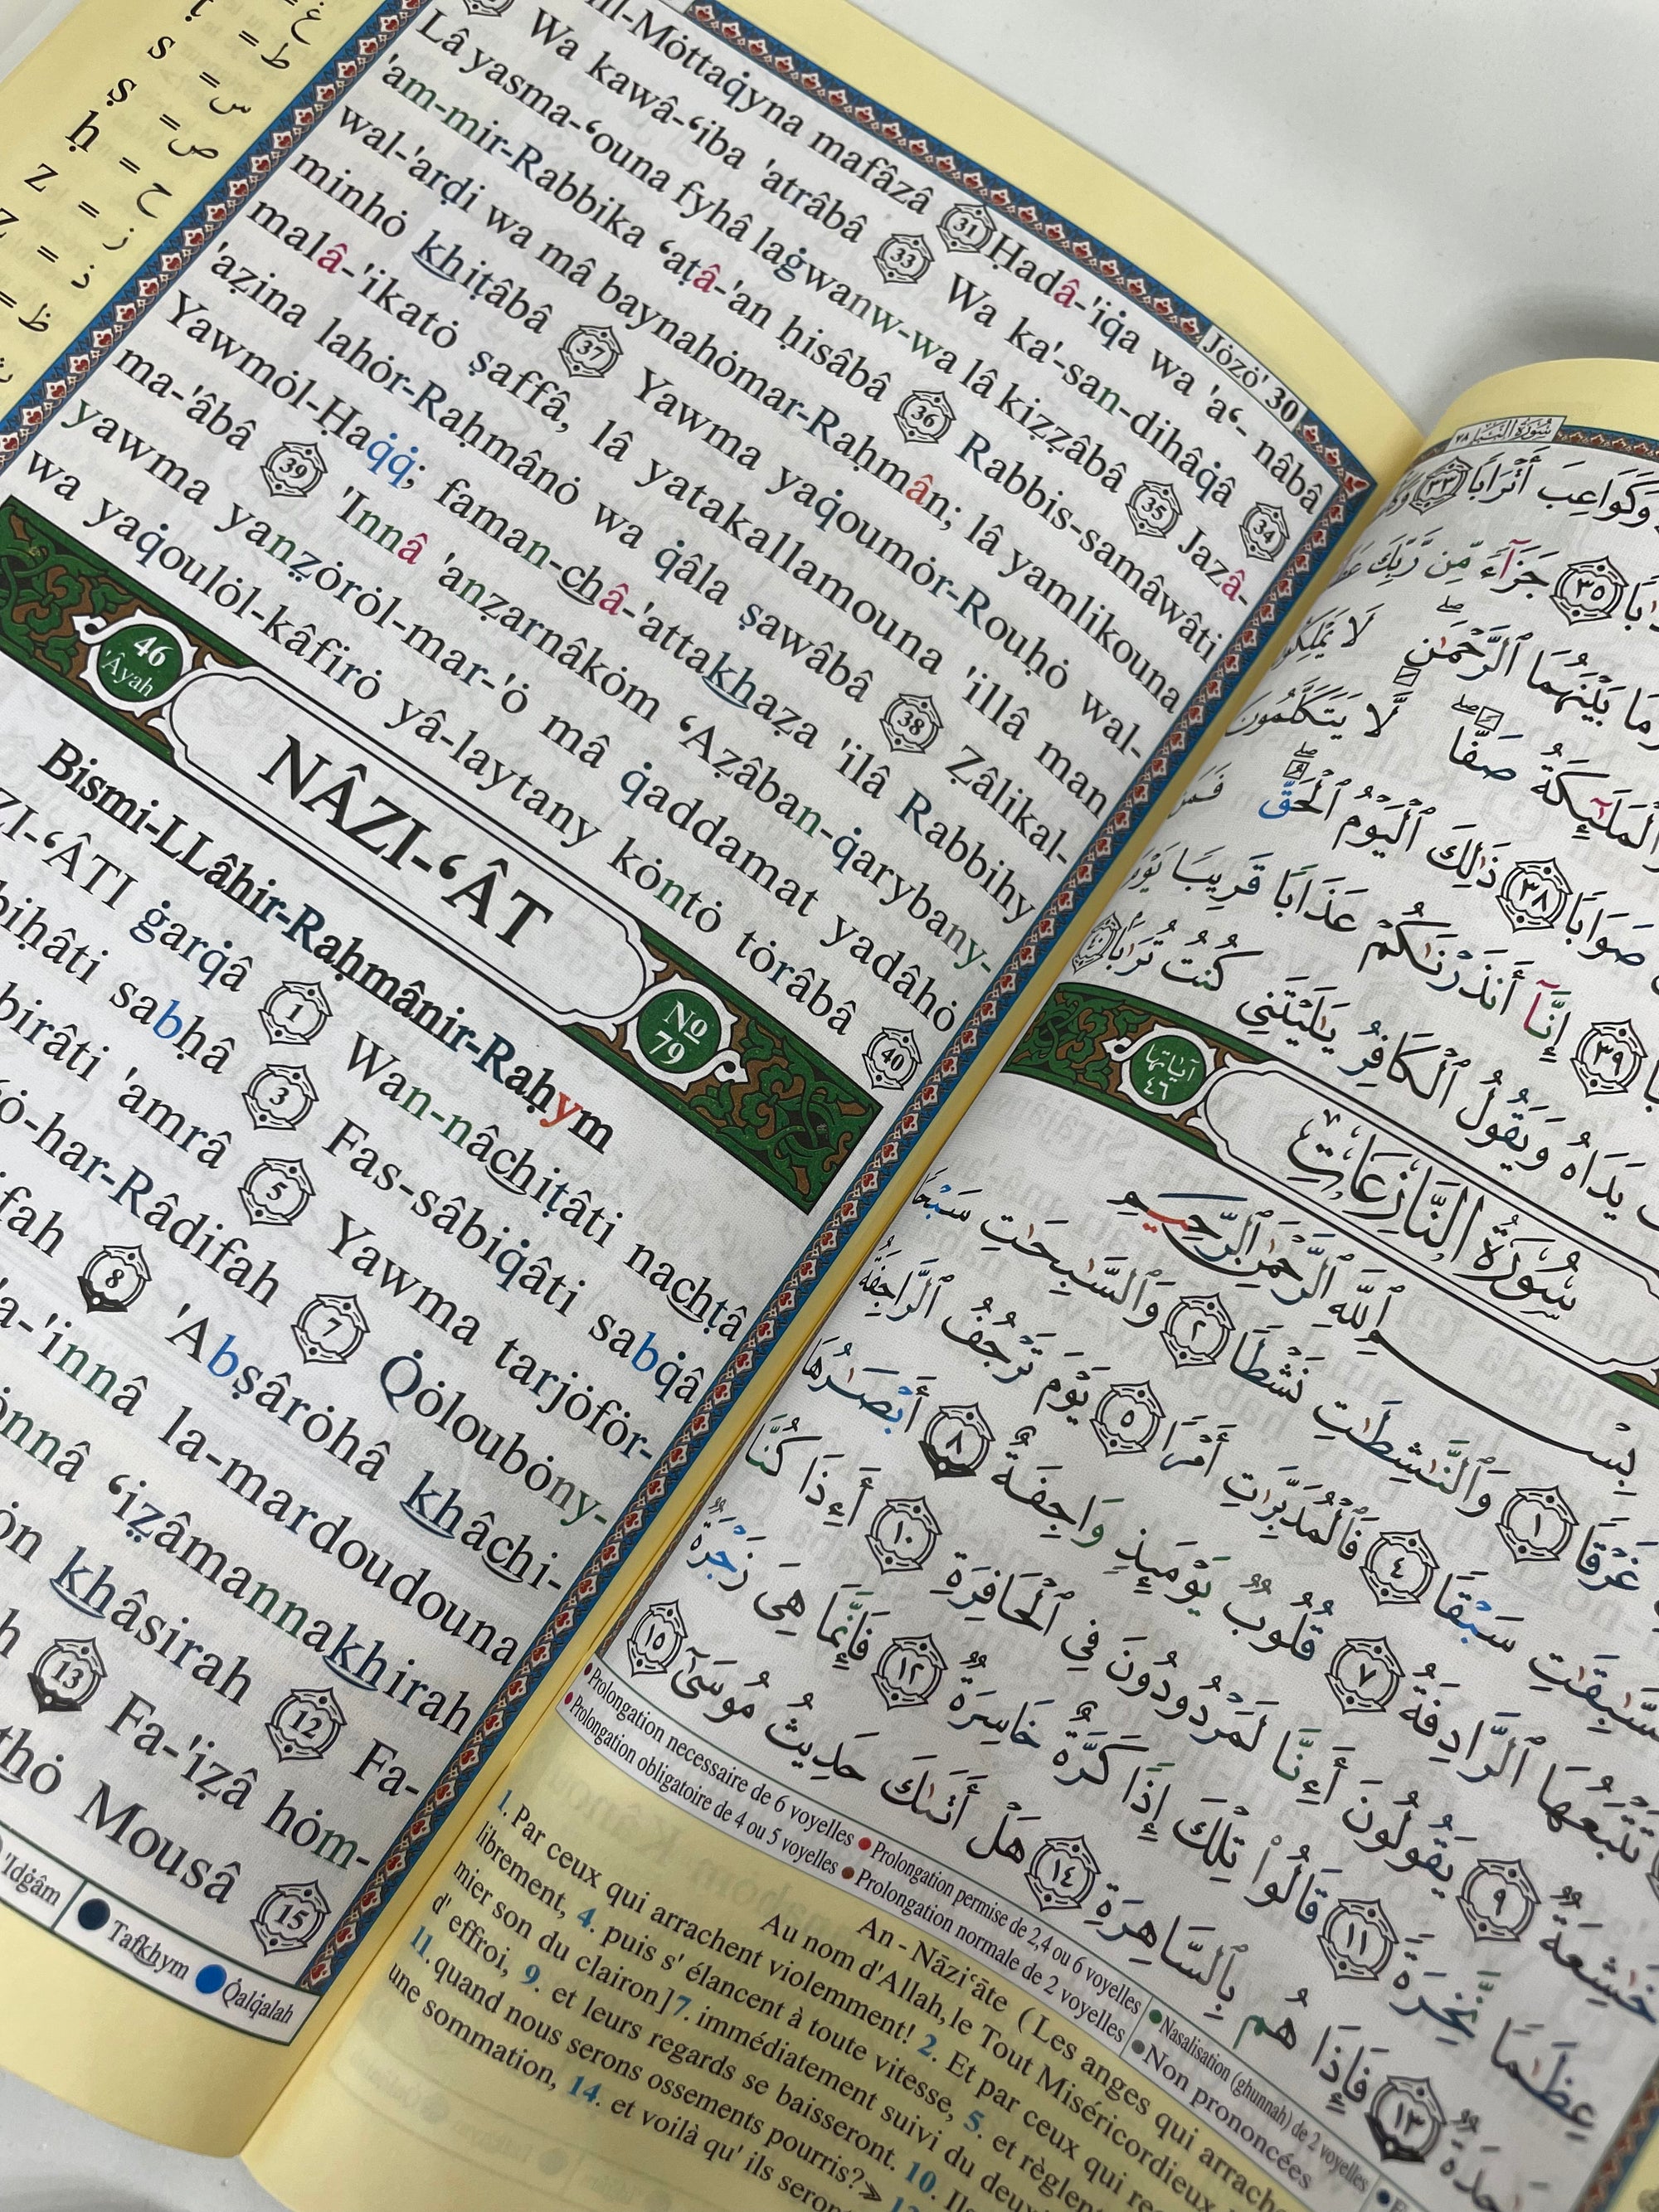 غ =
ط =
s = س
ṣ = ص
ḥ = ح
z = ز
= ذ
= ظ
Jȯzȯ' 30
lil-Mȯttaq̇yna mafâzâ 31 Ḥadâ-'iq̇a wa 'a‘- nâbâ
Wa kawâ-‘iba 'atrâbâ 33 Wa ka'-san-dihâq̇a 34
Lâ yasma-‘ouna fyhâ laġwanw-wa lâ kiẓẓâbâ 35 Jazâ-
'am-mir-Rabbika ‘aṭâ-'an ḥisâbâ 36 Rabbis-samâwâti
wal-'arḍi wa mâ baynahȯmar-Raḥmân; lâ yamlikouna
minhȯ khiṭâbâ 37 Yawma yaq̇oumȯr-Rouḥȯ wal-
malâ-'ikatȯ ṣaffâ, lâ yatakallamouna 'illâ man
'aẓina lahȯr-Raḥmânȯ wa q̇âla ṣawâbâ 38 Ẓâlikal-
Yawmȯl-Ḥaq̇q̇; faman-châ-'attakhaẓa 'ilâ Rabbihy
ma-'âbâ 39 'Innâ 'anẓarnâkȯm ‘Aẓâban-q̇arybany-
yawma yanẓȯrȯl-mar-'ȯ mâ q̇addamat yadâhȯ
wa yaq̇oulȯl-kâfirȯ yâ-laytany kȯntȯ tȯrâbâ 40
46 'Âyah
NÂZI-‘ÂT
No 79
Bismi-LLâhir-Raḥmânir-Raḥym
ZI-‘ÂTI ġarq̇â 1 Wan-nâchiṭâti nachṭâ
biḥâti sabḥâ 3 Fas-sâbiq̇âti sabq̇â
birâti 'amrâ 5 Yawma tarjȯfȯr-
ȯ-har-Râdifah 7 Q̇ȯloubȯny-
ifah 8 'Abṣârȯhâ khâchi-
'a-'innâ la-mardoudouna
ȯnnâ ‘iẓâmannakhirah
ȯn khâsirah 12 Fa-
h 13 Fa-'iẓâ hȯm-
thȯ Mousâ 15
'Idġâm Tafkhym Q̇alq̇alah
سُورَةُ النَّبَإِ ٧٨
وَكَوَاعِبَ أَتْرَابًا ٣٣
٣٥ جَزَآءً مِّن رَّبِّكَ
مَا بَيْنَهُمَا ٱلرَّحْمَٰنِ لَا يَمْلِكُونَ
ٱلْمَلَٰٓئِكَةُ صَفًّا لَّا يَتَكَلَّمُونَ
صَوَابًا ٣٨ ذَٰلِكَ ٱلْيَوْمُ ٱلْحَقُّ
٣٩ إِنَّآ أَنذَرْنَٰكُمْ عَذَابًا قَرِيبًا
يَدَاهُ وَيَقُولُ ٱلْكَافِرُ يَٰلَيْتَنِي كُنتُ تُرَٰبًا ٤٠
آيَاتُهَا ٤٦
سُورَةُ النَّازِعَاتِ
بِسْمِ ٱللَّهِ ٱلرَّحْمَٰنِ ٱلرَّحِيمِ
غَرْقًا ١ وَٱلنَّٰشِطَٰتِ نَشْطًا ٢ وَٱلسَّٰبِحَٰتِ سَبْحًا
سَبْقًا ٤ فَٱلْمُدَبِّرَٰتِ أَمْرًا ٥ يَوْمَ تَرْجُفُ ٱلرَّاجِفَةُ
تَتْبَعُهَا ٱلرَّادِفَةُ ٧ قُلُوبٌ يَوْمَئِذٍ وَاجِفَةٌ ٨ أَبْصَٰرُهَا
خَٰشِعَةٌ ٩ يَقُولُونَ أَءِنَّا لَمَرْدُودُونَ فِي ٱلْحَافِرَةِ ١٠ أَءِذَا كُنَّا
عِظَٰمًا نَّخِرَةً ١١ قَالُوا۟ تِلْكَ إِذًا كَرَّةٌ خَاسِرَةٌ ١٢ فَإِنَّمَا هِيَ زَجْرَةٌ
١٣ فَإِذَا هُم بِٱلسَّاهِرَةِ ١٤ هَلْ أَتَىٰكَ حَدِيثُ مُوسَىٰٓ ١٥
Prolongation necessaire de 6 voyelles Prolongation permise de 2,4 ou 6 voyelles Nasalisation (ghunnah) de 2 voyelles
Prolongation obligatoire de 4 ou 5 voyelles Prolongation normale de 2 voyelles Non prononcées
An - Nāzi‘āte ( Les anges qui
Au nom d'Allah, le Tout Miséricordieux
1. Par ceux qui arrachent violemment! 2. Et par ceux qui
librement, 4. puis s' élancent à toute vitesse, 5. et règlent
mier son du clairon] 7. immédiatement suivi du
d' effroi, 9. et leurs regards se baisseront. 10. Ils
11. quand nous serons ossements pourris?»
une sommation, 14. et voilà qu' ils seront